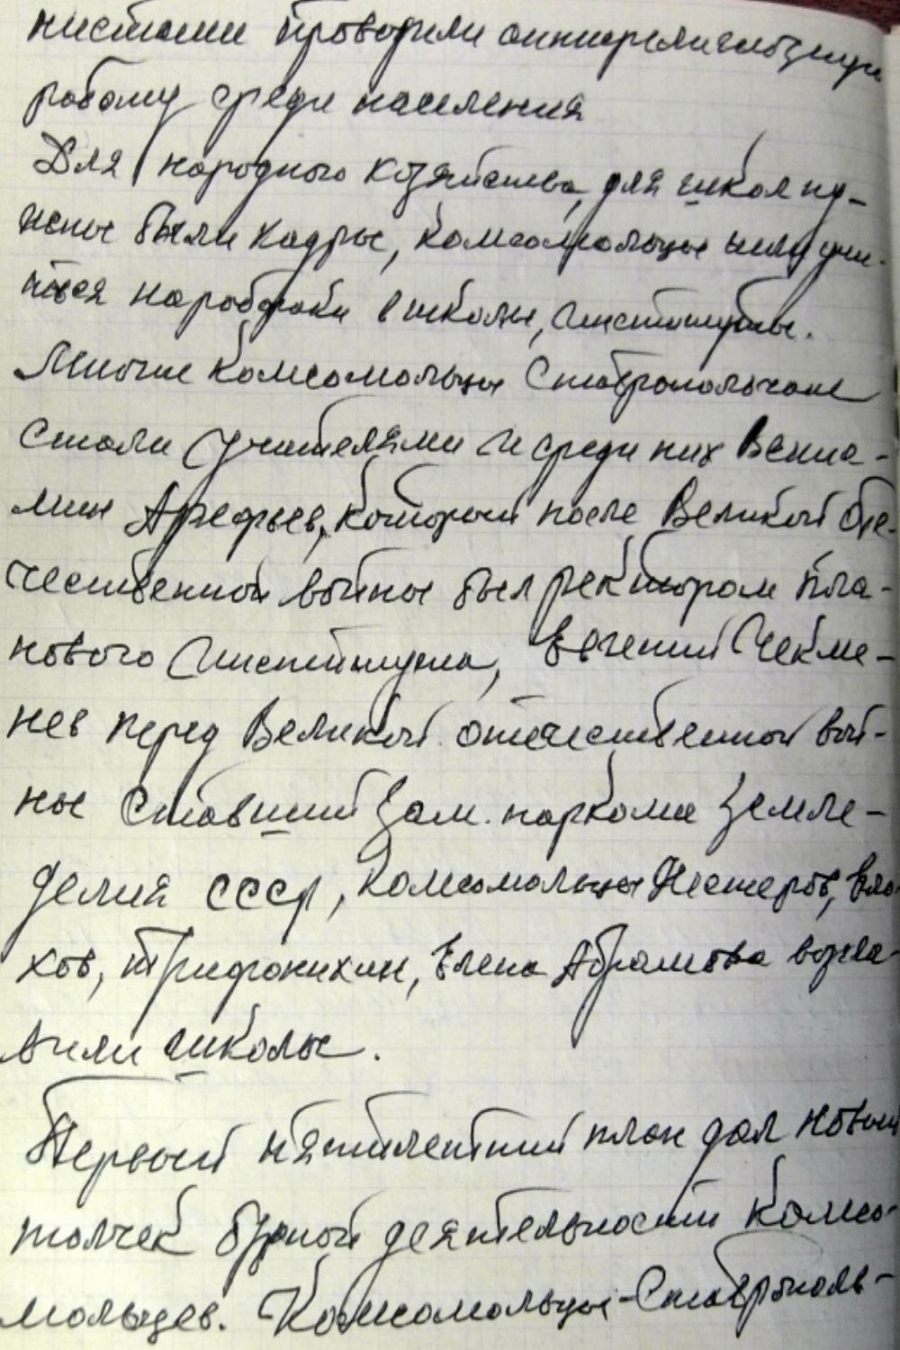 нистами проводили антирелигиозную
работу среди населения
Для народного хозяйства, для школ ну-
жны были кадры, комсомольцы шли учи-
ться на рабфаки в школы, институты.
Многие комсомольцы Ставропольчане
стали учителями и среди них Вениа-
мин Арефьев, который после Великой Оте-
чественной войны был ректором Пла-
нового института, Евгений Чекме-
нев перед Великой отечественной вой-
ны ставший зам. наркома земле-
делия СССР, комсомольцы Нестеров, Вла-
хов, Трифонихин, Елена Абрамова возгла-
вили школы.
Первый пятилетний план дал новый
толчек бурной деятельности комсо-
мольцев. Комсомольцы-Ставрополь-